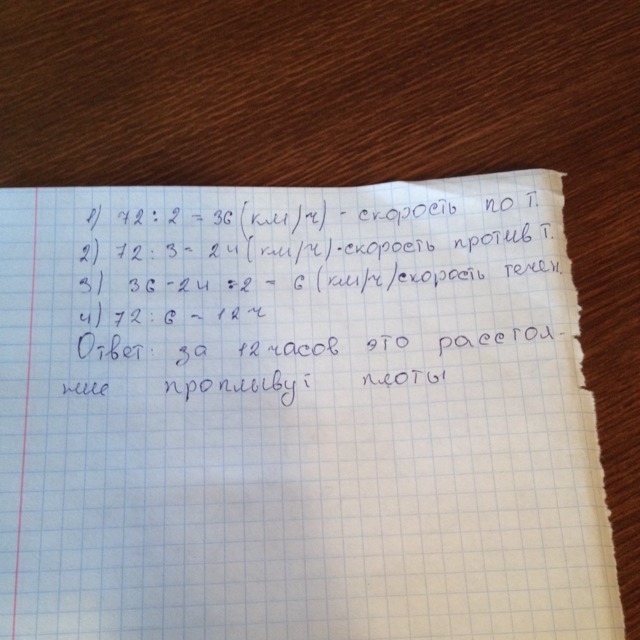 1) 72 : 2 = 36 (км/ч) - скорость по т.
2) 72 : 3 = 24 (км/ч) - скорость против т.
3) 36 - 24 : 2 = 6 (км/ч) скорость течен.
4) 72 : 6 = 12 ч
Ответ: за 12 часов это расстоя-
ние проплывут плоты